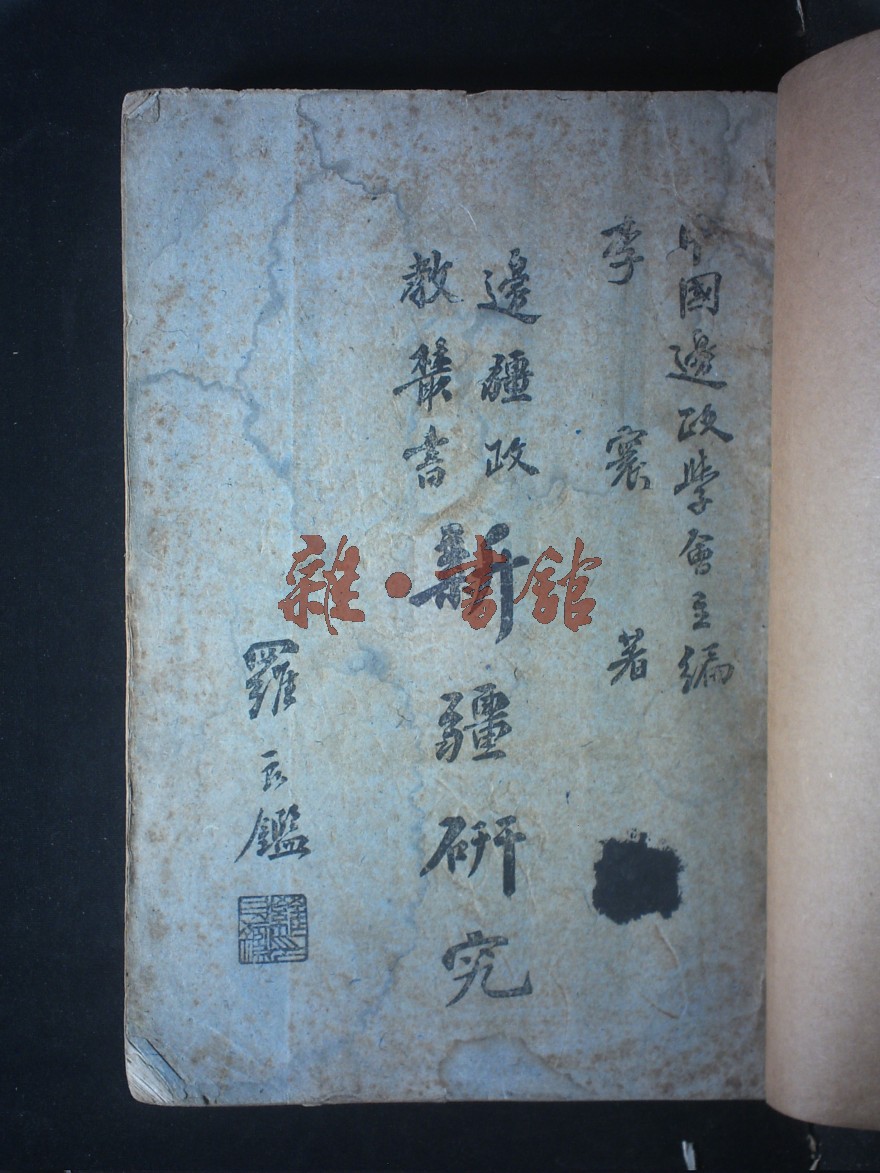 中國邊政學會主編
李寰著
邊疆政
教叢書
新疆研究
羅良鑑
雜·書館